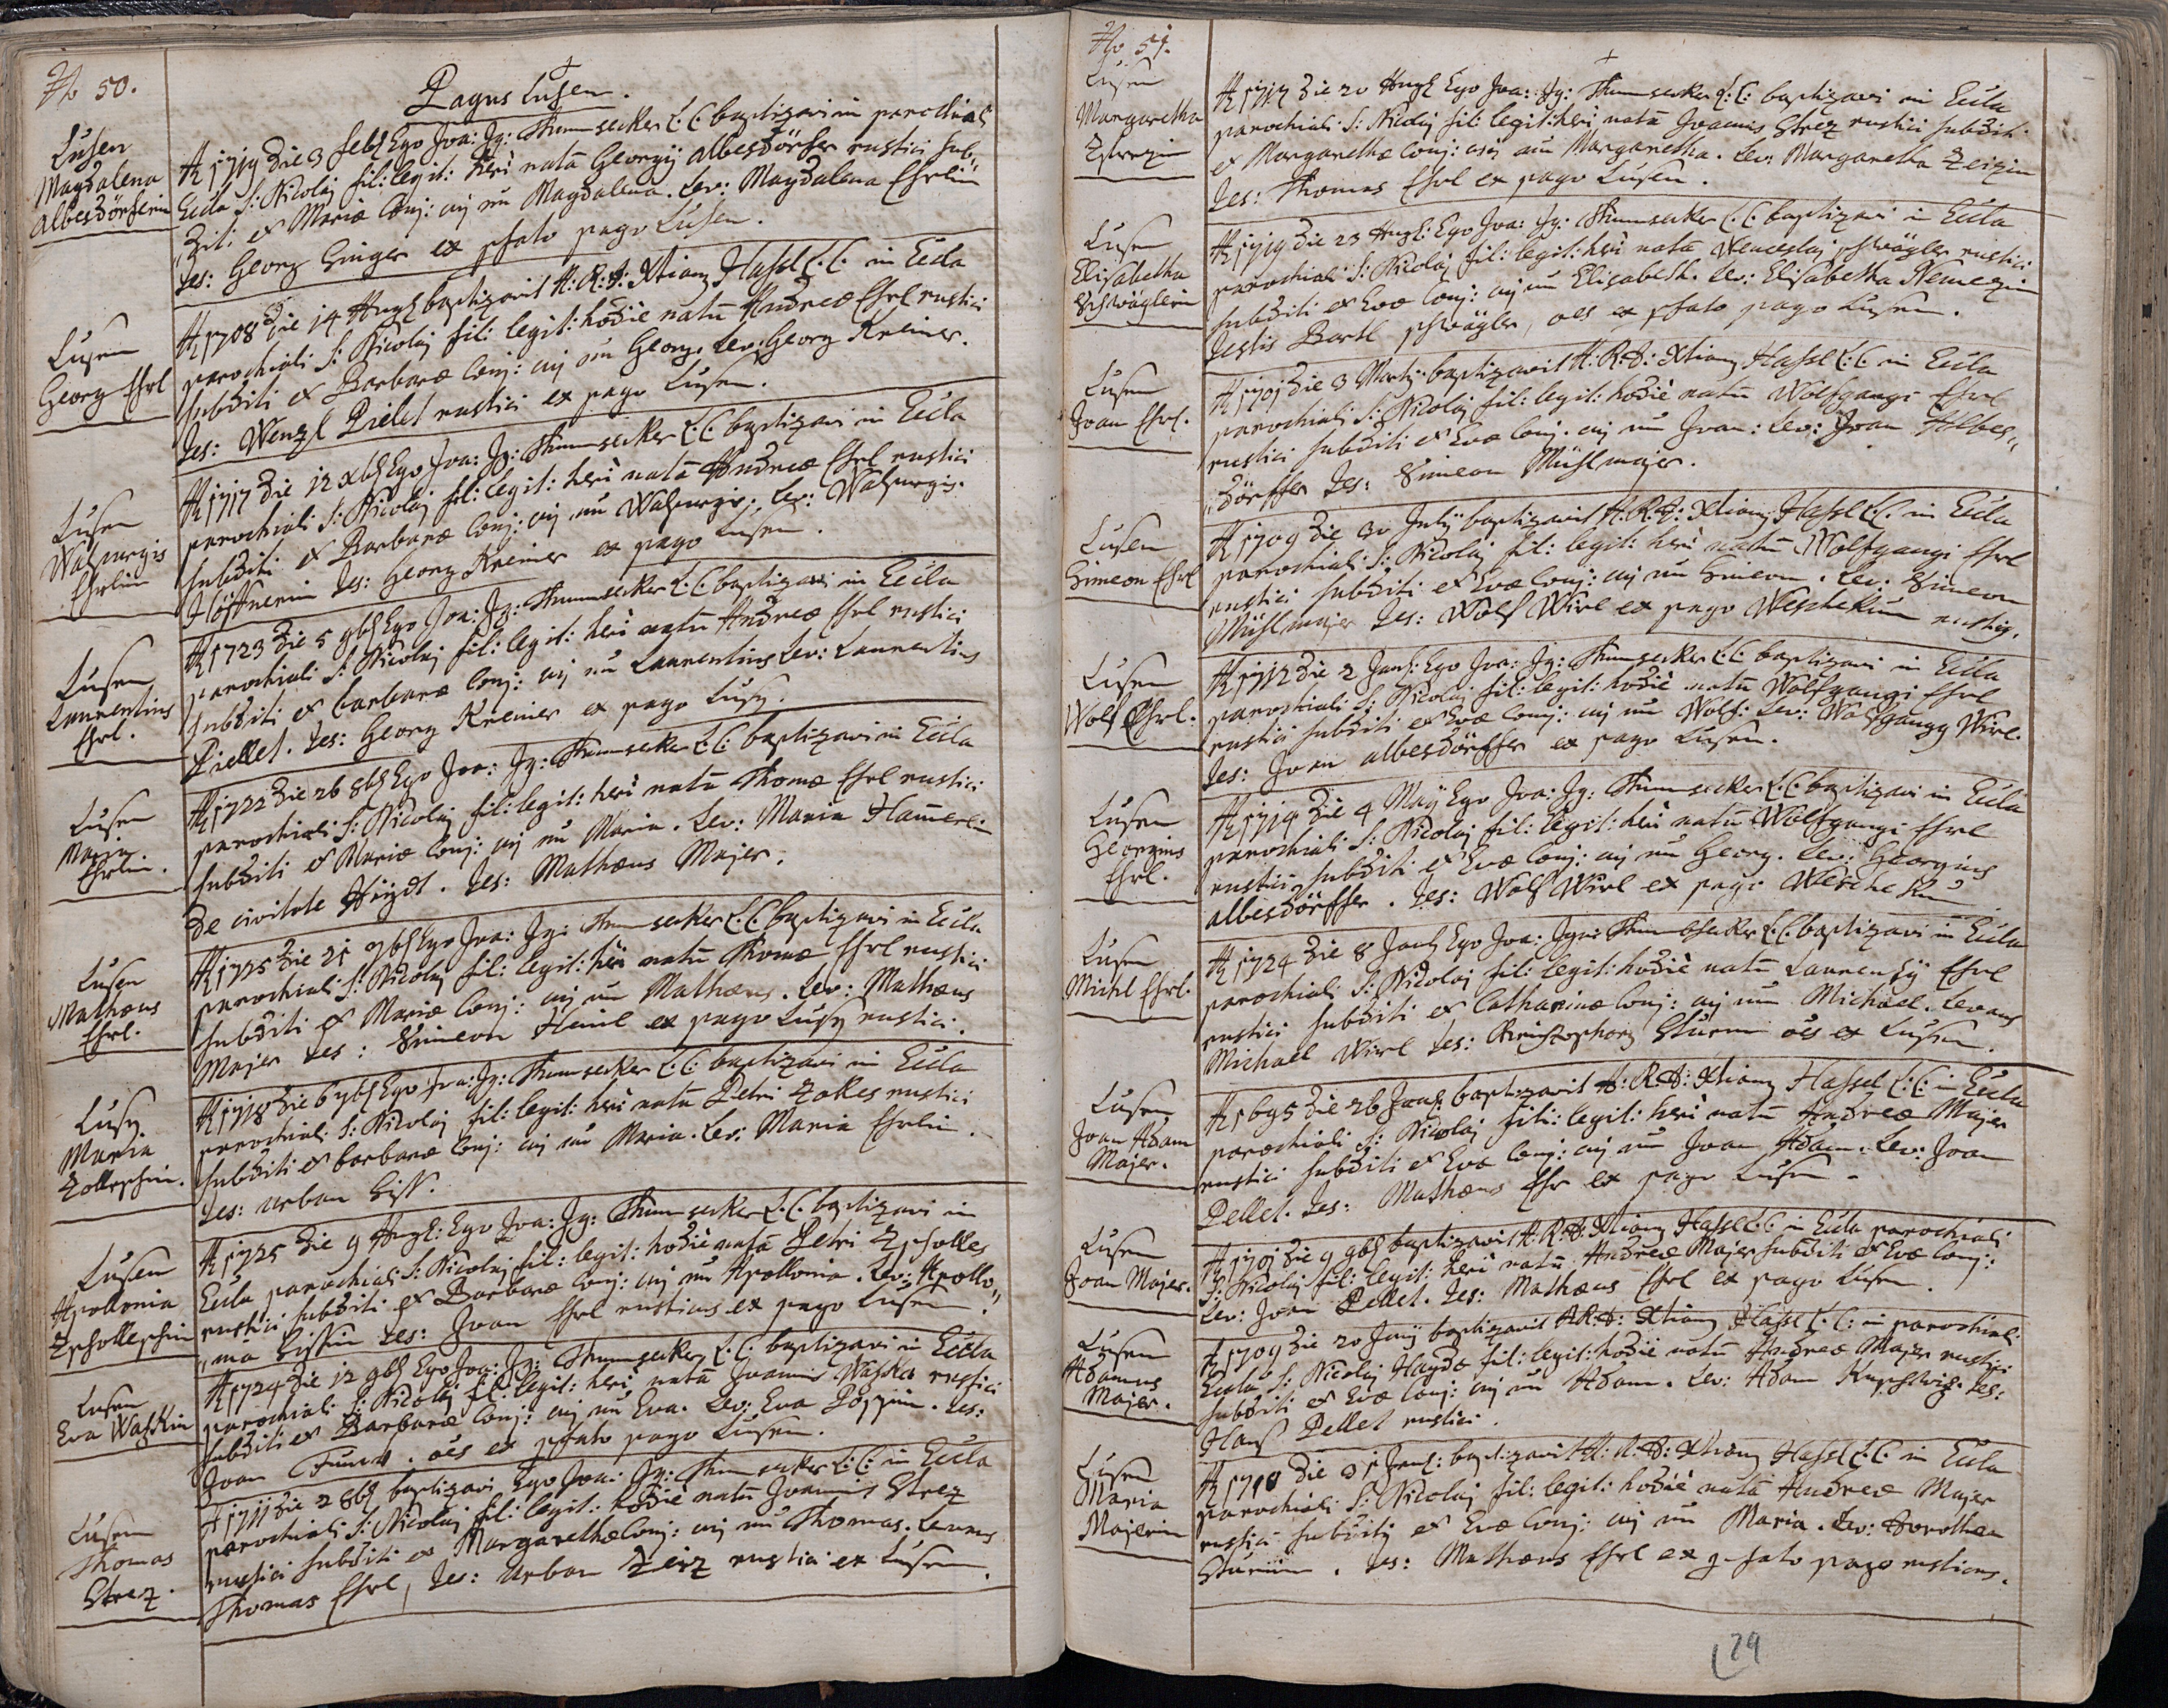 No 50.
Pagus Lusen.
Lusen
Magdalena
Albesdörferin
A 1719 die 3 feb Ego Joa: Ig: Thumsecker L:C: baptizavi in parochiali
Eccla S: Nicolaj fil: legit: heri natã Georgij albesdörfer rustici sub„
„diti et Mariæ Conj: cuj nñ Magdalena. Lev: Magdalena Ehrlin
Tes: Georg Singer ex pfato pago Lusen.
Lusen
Georg Ehrl
A 1708 die 14 Aug baptizavit A: R: D: Xtiang Hassl L:C: in Eccla
parochiali S: Nicolaj fil: legit: hodie natũ Andreæ Ehrl rustici
subditi et Barbaræ Conj: cuj nñ Georg. Lev: Georg Kreiner.
Tes: Wenzl Pielet rustici ex pago Lusen.
Lusen
Walpurgis
Ehrlin
A 1717 die 12 xb Ego Joa: Ig: Thumsecker L:C: baptizavi in Eccla
parochiali S: Nicolaj fil: legit: heri natã Andreæ Ehrl rustici
subditi et Barbaræ Conj: cuj nñ Walpurgis. Lev: Walpurgis
Höffnerin Tes: Georg Kreiner ex pago Lusen.
Lusen
Laurentius
Ehrl.
A 1723 die 5 9b Ego Joa: Ig: Thumsecker L:C: baptizavi in Eccla
parochiali S: Nicolaj fil: legit: heri natũ Andreæ Ehrl rustici
subditi et barbaræ Conj: cuj nñ Laurentius Lev: Laurentius
Piellet. Tes: Georg Kreiner ex pago Lusen.
Lusen
Maria
Ehrlin.
A 1722 die 26 8b Ego Joa: Ig: Thumsecker L:C: baptizavi in Eccla
parochiali S: Nicolaj fil: legit: heri natũ Thomæ Ehrl rustici
subditi et Mariæ Conj: cuj nñ Maria. Lev: Maria Ham̃erlin
de civitate Haÿdt. Tes: Mathæus Majer.
Lusen
Mathæus
Ehrl.
A 1725 die 21 7b Ego Joa: Ig: Thumsecker L:C: baptizavi in Eccla
parochiali S: Nicolaj fil: legit: heri natũ Thomæ Ehrl rustici
subditi et Mariæ Conj: cuj nñ Mathæus. Lev: Mathæus
Majer Tes: Simeon Heinl ex pago Lusen rustici.
Lusen
Maria
Zollesschin.
A 1718 die 6 7b Ego Joa: Ig: Thumsecker L:C: baptizavi in Eccla
parochiali S: Nicolaj fil: legit: heri natã Petri Zokes rustici
subditi et barbaræ Conj: cuj nñ Maria. Lev: Maria Ehrlin.
Tes: Urban Siss.
Lusen
Apollonia
Zschollesschin
A 1725 die 9 Aug: Ego Joa: Ig: Thumsecker L:C: baptizavi in
Eccla parochiali S: Nicolaj fil: legit: hodie natã Petri Zscholles
rustici subditi et Barbaræ Conj: cuj nñ Apollonia. Lev: Apollo„
„nia Sissin Tes: Joan Ehrl rusticus ex pago Lusen.
Lusen
Eva Waschkin
A 1724 die 12 9b Ego Joa: Ig: Thumsecker L:C: baptizavi in Eccla
parochiali S: Nicolaj fil: legit: heri natã Joannis Waschka rustici
subditi et Barbaræ Conj: cuj nñ Eva. Lev: Eva Pöppin. Tes:
Joan . oẽs ex pfato pago Lusen.
Lusen
Thomas
Strez.
A 1711 die 2 8b baptizavi Ego Joa: Ig: Thumsecker L:C: in Eccla
parochiali S: Nicolaj fil: legit: hodie natũ Joannis Strez
rustici subditi et Margarethæ Conj: cuj nñ Thomas. Levans
Thomas Ehrl, Tes: Urban Zeiz rustici ex Lusen.
No 51.
Lusen
Margaretha
Zstrezin
A 1717 die 20 Aug Ego Joa: Ig: Thumsecker L:C: baptizavi in Eccla
parochiali S: Nicolaj fil: legit: heri natã Joannis Strez rustici subditi
et Margarethæ Conj: cuj nñ Margaretha. Lev: Margaretha Zeizin
Tes: Thomas Ehrl ex pago Lusen.
Lusen
Elisabetha
Schwäglerin
A 1719 die 23 Aug: Ego Joa: Ig: Thumsecker L:C: baptizavi in Eccla
parochiali S: Nicolaj fil: legit: heri natã Wenceslaj schwägler rustici
subditi et Evæ Conj: cuj nñ Elisabeth. Lev: Elisabetha Nemezin
Testis Bartl schwägler, oẽs ex pfato pago Lusen.
Lusen
Joan Ehrl.
A 1701 die 3 Martij baptizavit A: R: D: Xtiang Hassl L:C: in Eccla
parochiali S: Nicolaj fil: legit: hodie natũ Wolfgangi Ehrl
rustici subditi et Evæ Conj: cuj nñ Joan: Lev: Joan Albes„
„dörffer Tes: Simeon Mühlmajer.
Lusen
Simeon Ehrl
A 1709 die 30 Julij baptizavit A: R: D: Xtiang Hassl L:C: in Eccla
parochiali S: Nicolaj fil: legit: heri natũ Wolfgangi Ehrl
rustici subditi et Evæ Conj: cuj nñ Simeon. Lev: Simeon
Mühlmajer Tes: Wolf Wirl ex pago Weschekun rustici.
Lusen
Wolf Ehrl.
A 1712 die 2 Jan: Ego Joa: Ig: Thumsecker L:C: baptizavi in Eccla
parochiali S: Nicolaj fil: legit: hodie natũ Wolfgangi Ehrl
rustici subditi et Evæ Conj: cuj nñ Wolf: Lev: Wolfgangg Wirl.
Tes: Joan albesdörffer ex pago Lusen.
Lusen
Georgius
Ehrl.
A 1714 die 4 Maÿ Ego Joa: Ig: Thumsecker L:C: baptizavi in Eccla
parochiali S: Nicolaj fil: legit: heri natũ Wolfgangi Ehrl
rustici subditi et Evæ Conj: cuj nñ Georg. Lev: Georgius
albesdörffer. Tes: Wolf Wirl ex pago Weschekun
Lusen
Michl Ehrl.
A 1724 die 8 Jan Ego Joa: Ign: Thumbsecker L:C: baptizavi in Eccla
parochiali S: Nicolaj fil: legit: hodie natũ Laurentÿ Ehrl
rustici subditi et Catharinæ Conj: cuj nñ Michael. Levans
Michael Wirl Tes: Christophorg Sturm oẽs ex Lusen.
Lusen
Joan Adam
Majer.
A 1695 die 26 Jan: baptizavit A: R: D: Xtiang Hassel L:C: in Eccla
parochiali S: Nicolaj fil: legit: heri natũ Andreæ Majer
rustici subditi et Evæ Conj: cuj nñ Joan Adam. Lev: Joan
Pellet. Tes: Mathæus Ehr ex pago Lusen.
Lusen
Joan Majer.
A 1701 die 9 9b baptizavit A: R: D: Xtiang Hassl L:C: in Eccla parochiali
S: Nicolaj fil: legit: heri natũ Andreæ Majer subditi et Evæ Conj:
Lev: Joan Pellet. Tes: Mathæus Ehrl ex pago Lusen.
Lusen
Adamus
Majer.
A 1709 die 20 Junij baptizavit A: R: D: Xtiang Hassl L:C: in parochiali
Eccla S: Nicolaj Haydæ fil: legit: hodie natũ Andreæ Majer rustici
subditi et Evæ Conj: cuj nñ Adam. Lev: Adam Kupschwig. Tes:
Hans Pellet rustici.
Lusen
Maria
Majerin
A 1710 die 31 Jan: baptizavit A: R: D: Xtiang Hassl L:C: in Eccla
parochiali S: Nicolaj fil: legit: hodie natã Andreæ Majer
rustici subditj et Evæ Conj: cuj nñ Maria. Lev: Dorothea
Sturmin. Tes: Mathæus Ehrl ex pfato pago rusticus.
29